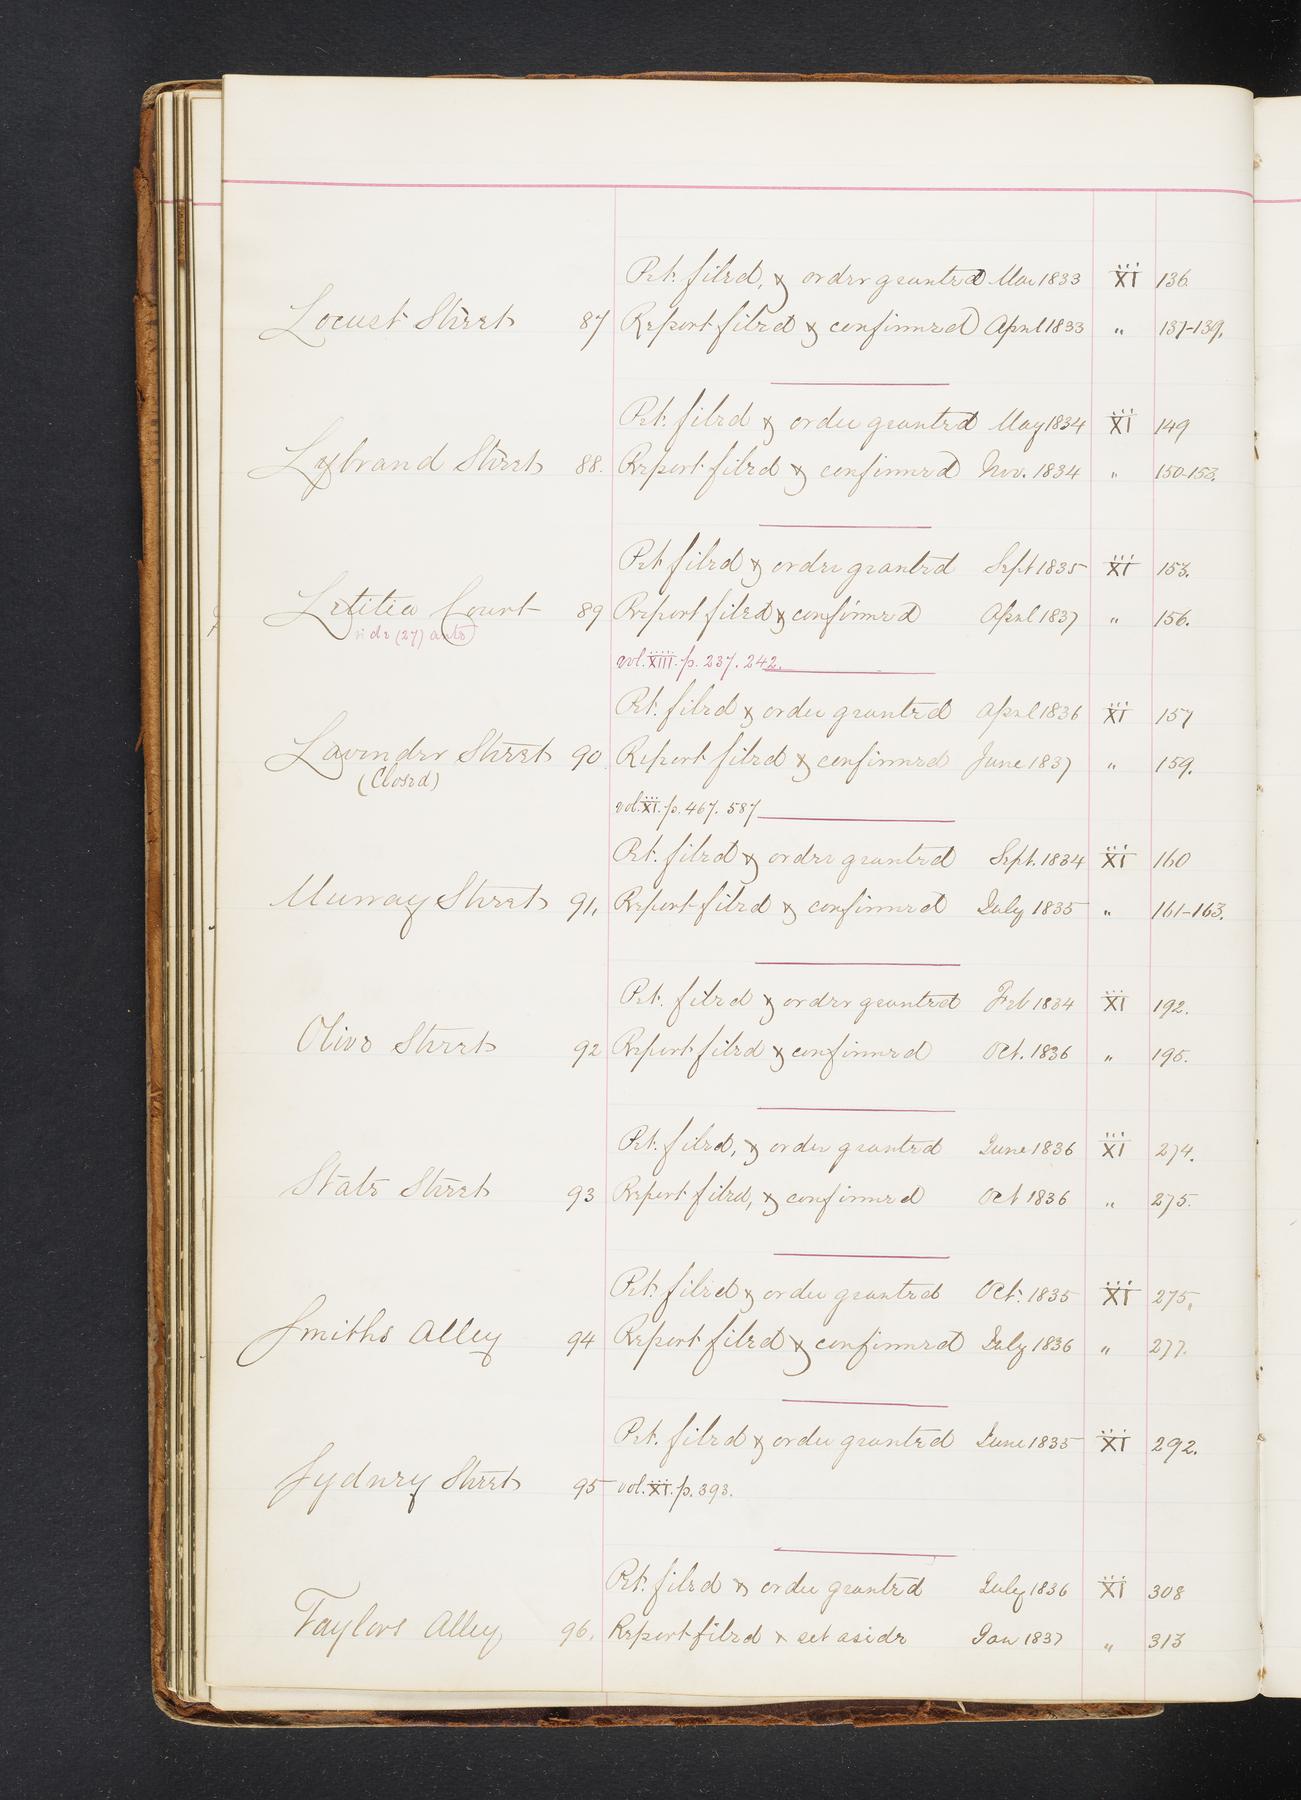 Pet. filed, & order granted Mar 1833 XI 136.
Locust Street 87 Report filed & confirmed April 1833 " 137-139.
Pet. filed & order granted May 1834 XI 149
Lybrand Street 88. Report filed & confirmed Nov. 1834 " 150-153.
Pet filed & order granted Sept 1835 XI 153.
Letitia Court 89 Report filed & confirmed April 1837 " 156.
vide (27) ante
vol. XIII. p. 237. 242.
Pet. filed & order granted April 1836 XI 157
Lavender Street 90 Report filed & confirmed June 1837 " 159.
(Closed)
vol. XI. p. 467. 587
Pet. filed & order granted Sept. 1834 XI 160
Murray Street 91. Report filed & confirmed July 1835 " 161-163.
Pet. filed & order granted Feb 1834 XI 192.
Olive Street 92 Report filed & confirmed Oct. 1836 " 195.
Pet. filed, & order granted June 1836 XI 274.
State Street 93 Report filed, & confirmed Oct 1836 " 275.
Pet. filed & order granted Oct. 1835 XI 275.
Smiths Alley 94 Report filed & confirmed July 1836 " 277.
Pet. filed & order granted June 1835 XI 292.
Sydney Street 95 vol. XI. p. 393.
Pet. filed & order granted July 1836 XI 308
Taylors Alley 96. Report filed & set aside Jan 1837 " 313